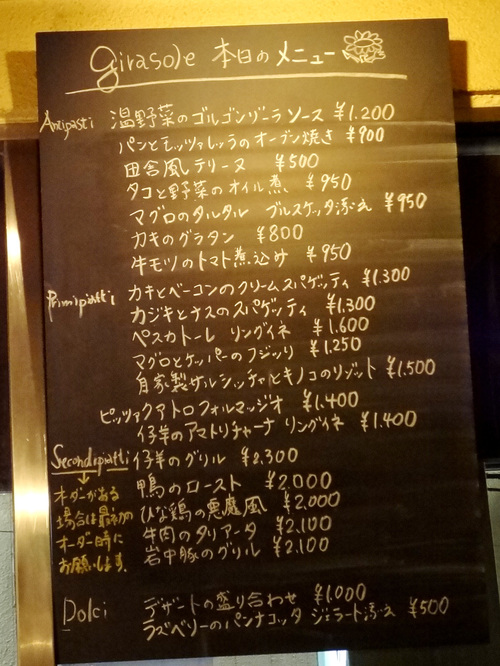 girasole 本日のメニュー
Antipasti 温野菜のゴルゴンゾーラソース ¥1.200
パンとモッツァレッラのオーブン焼き ¥900
田舎風テリーヌ ¥500
タコと野菜のオイル煮 ¥950
マグロのタルタル ブルスケッタ添え ¥950
カキのグラタン ¥800
牛モツのトマト煮込み ¥950
Primipiatti カキとベーコンのクリームスパゲッティ ¥1.300
カジキとナスのスパゲッティ ¥1.300
ペスカトーレ リングイネ ¥1.600
マグロとケッパーのフジッリ ¥1.250
自家製サルシッチャとキノコのリゾット ¥1.500
ピッツァクアトロフォルマッジオ ¥1.400
仔羊のアマトリチャーナ リングイネ ¥1.400
Secondipiatti 仔羊のグリル ¥2.300
鴨のロースト ¥2.000
ひな鶏の悪魔風 ¥2.000
牛肉のタリアータ ¥2.100
岩中豚のグリル ¥2.100
オーダーがある
場合は最初の
オーダー時に
お願いします。
Dolci デザートの盛り合わせ ¥1.000
ラズベリーのパンナコッタ ジェラート添え ¥500